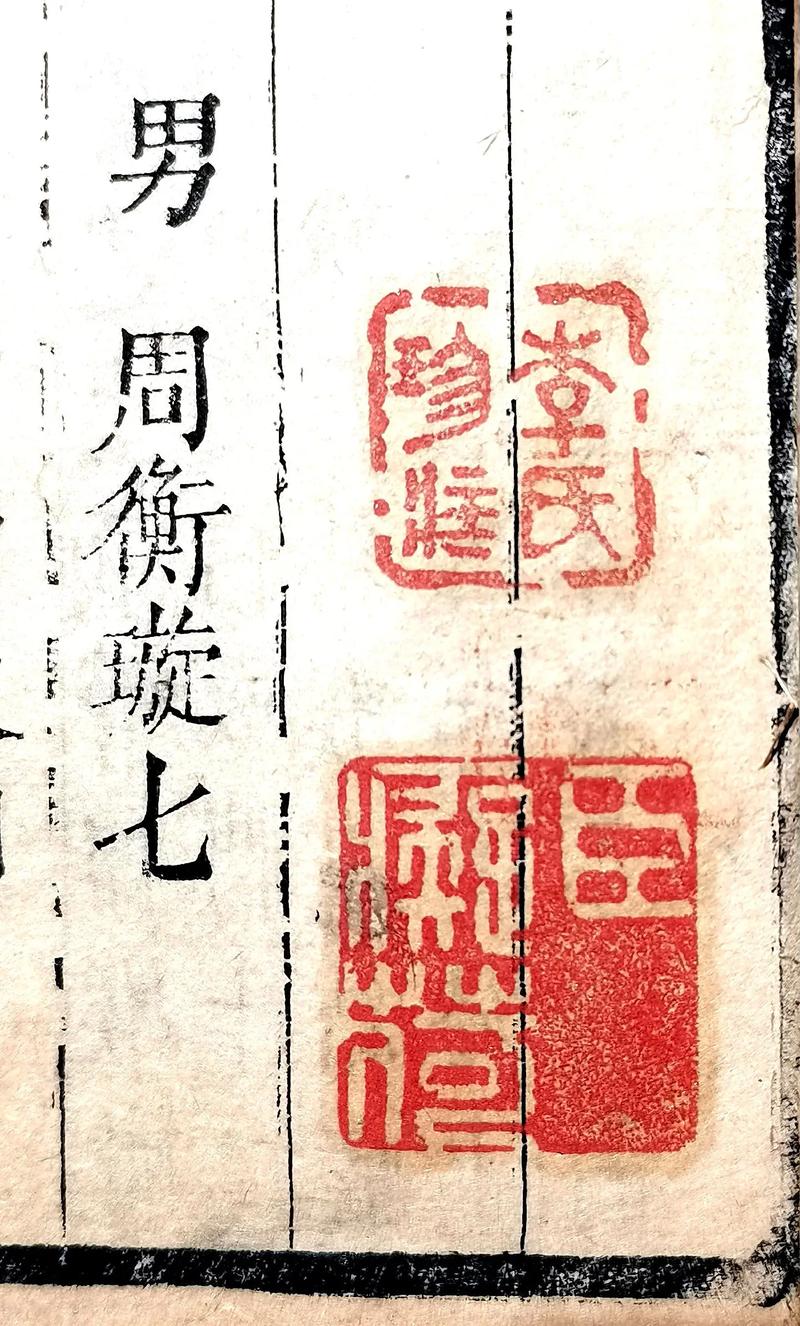 李氏
珍藏
臣
荷
男 周衡璇七